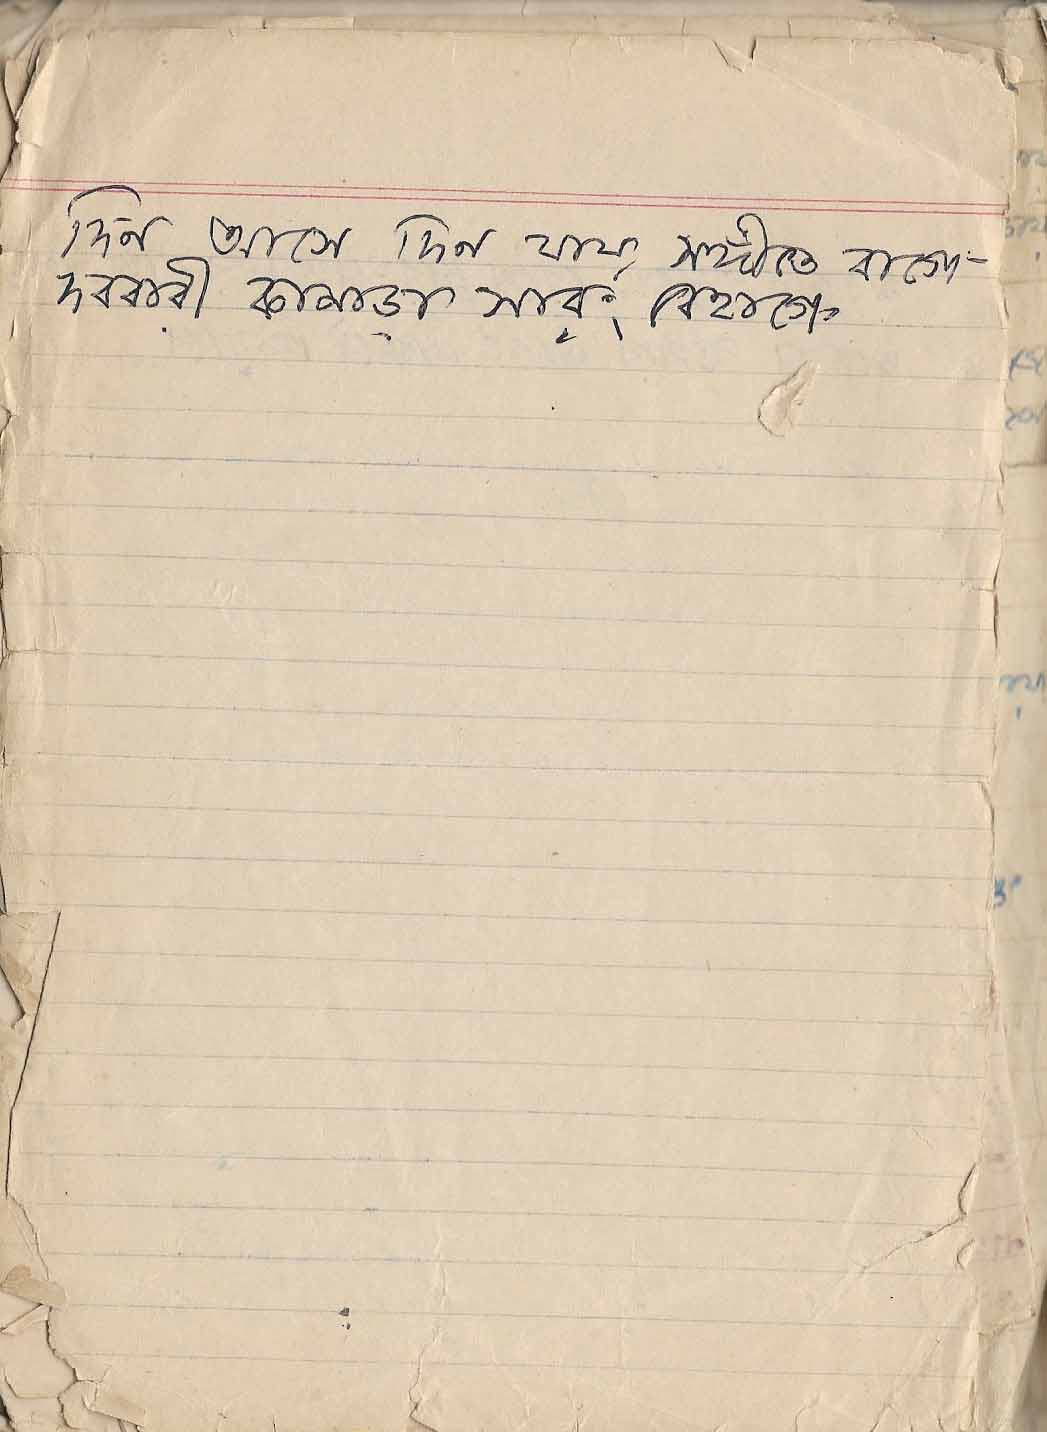 দিন আসে দিন যায়, সঙ্গীতে রাগে-
দরবারী কানাড়া সারং বেহাগে।